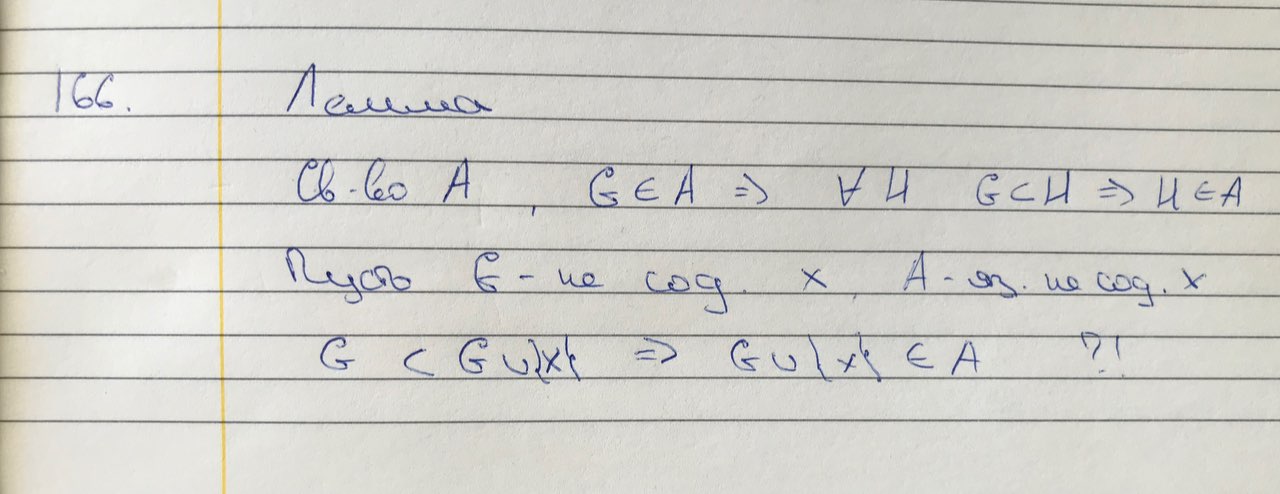 166. Лемма
Св-во A, G ∈ A ⇒ ∀ H G ⊂ H ⇒ H ∈ A
Пусть G - не сод. x, A - яз. не сод. x
G ⊂ G ∪ {x} ⇒ G ∪ {x} ∈ A ?!